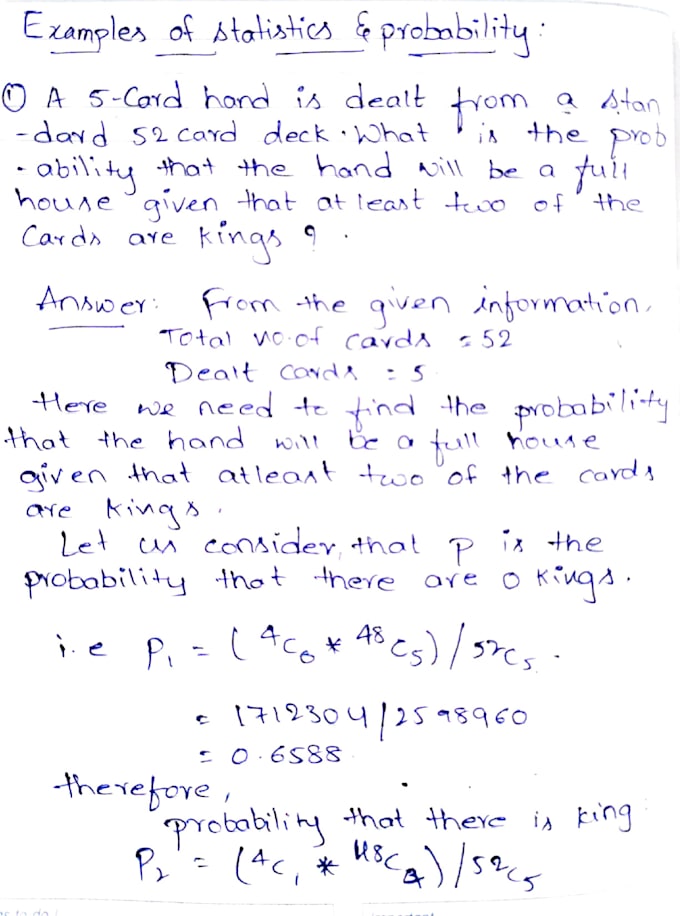 Examples of statistics & probability:
① A 5-Card hand is dealt from a stan
-dard 52 card deck. What is the prob
-ability that the hand will be a full
house given that at least two of the
Cards are kings ?.
Answer: From the given information,
Total no.of cards = 52
Dealt cards = 5
Here we need to find the probability
that the hand will be a full house
given that atleast two of the cards
are kings.
Let us consider, that p is the
probability that there are 0 kings.
i.e P₁ = (⁴C₀ * ⁴⁸C₅)/⁵²C₅.
= 1712304/2598960
= 0.6588
therefore,
probability that there is king
P₂ = (⁴C₁ * ⁴⁸C₄)/⁵²C₅